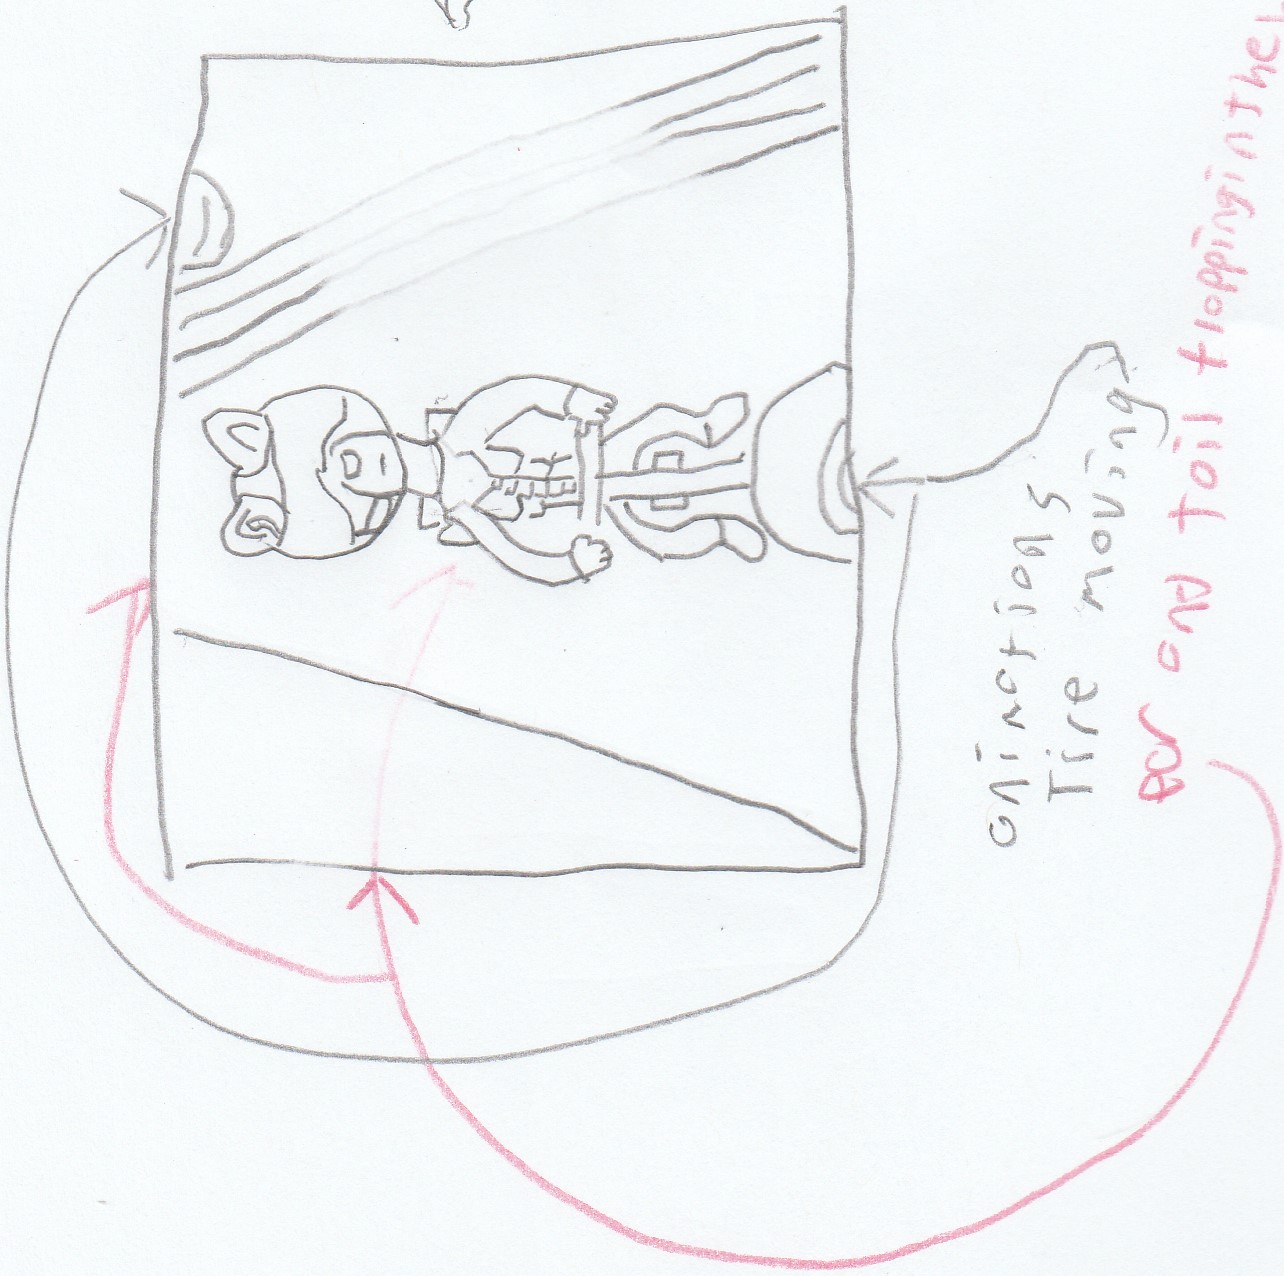 animations
Tire moving
ear and tail flopping in the